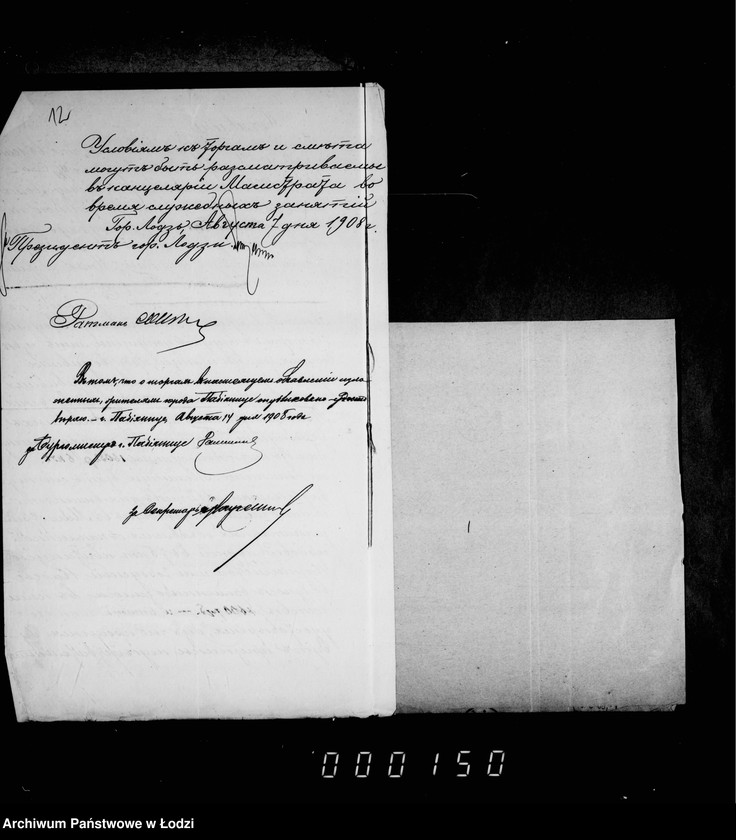 12
Условіямъ къ торгамъ и смѣта
могутъ быть разсматриваемы
въ канцеляріи Магистрата во
время служебныхъ занятій
Гор. Лодзь, Августа 7 дня 1908 г.
Президентъ гор. Лодзи
Ратманъ
Въ томъ, что о торгахъ
жителямъ города Пабіянице опубликовано
г. Пабіянице, Августа 14 дня 1908 года
Бургомистръ г. Пабіянице
за Секретаря
000150
Archiwum Państwowe w Łodzi